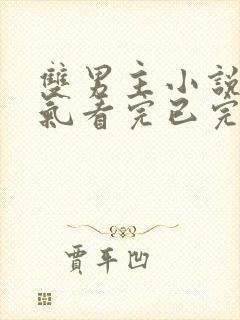 雙男主小說
氣看完已完
賈平凹